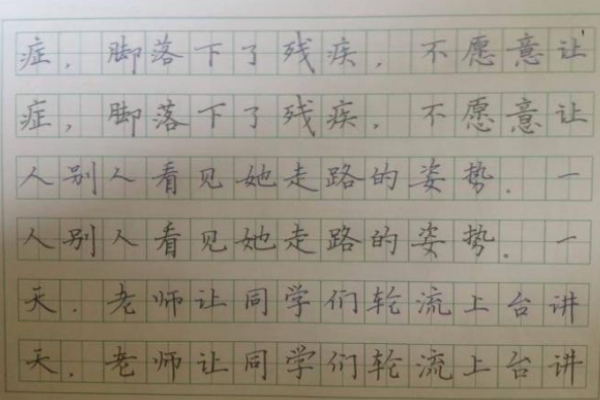 症，脚落下了残疾，不愿意让
症，脚落下了残疾，不愿意让
人别人看见她走路的姿势．一
人别人看见她走路的姿势．一
天．老师让同学们轮流上台讲
天．老师让同学们轮流上台讲